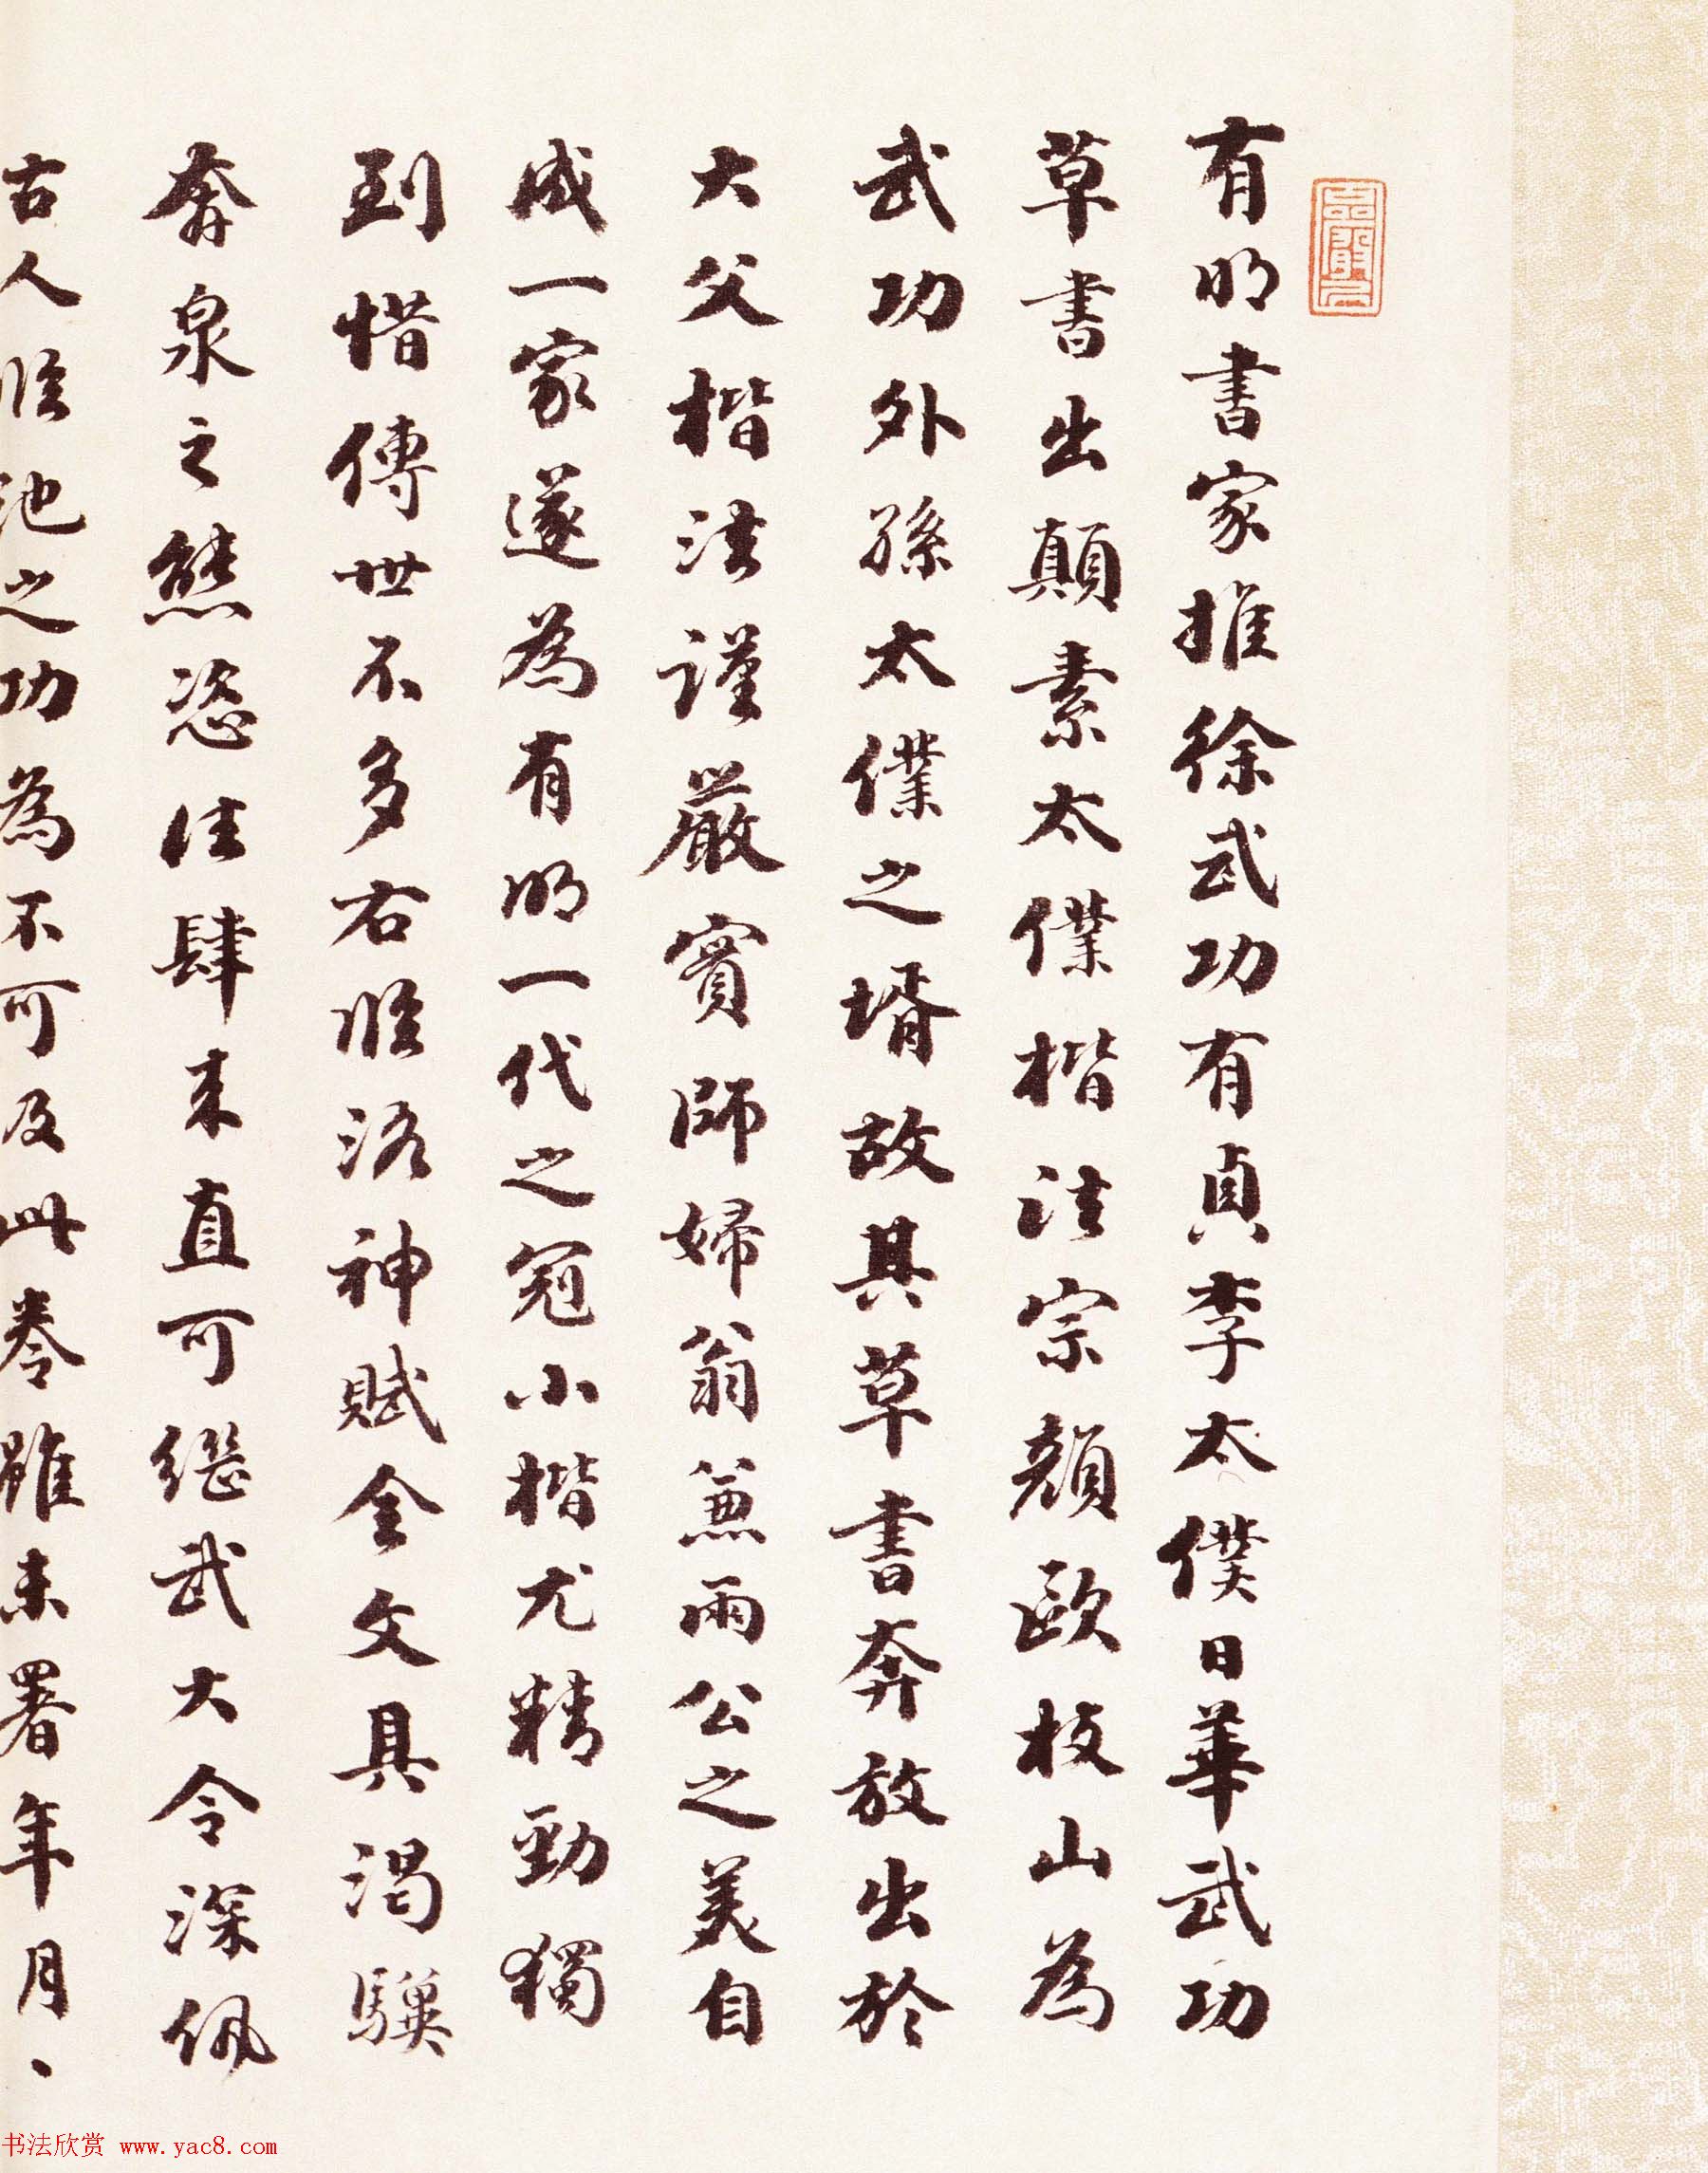 有明書家推徐武功有貞李太僕日華武功
草書出顛素太僕楷法宗顔歐枝山為
武功外孫太僕之壻故其草書奔放出於
大父楷法謹嚴實師婦翁兼兩公之美自
成一家遂為有明一代之冠小楷尤精勁獨
到惜傳世不多右臨洛神賦全文具渴驥
奔泉之態恣性肆來直可繼武大令深佩
古人臨池之功為不可及此卷雖未署年月、
书法欣赏 www.yac8.com